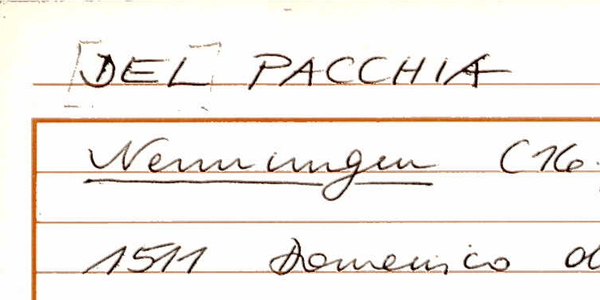 [DEL] PACCHIA
Nennungen (16.
1511 Domenico